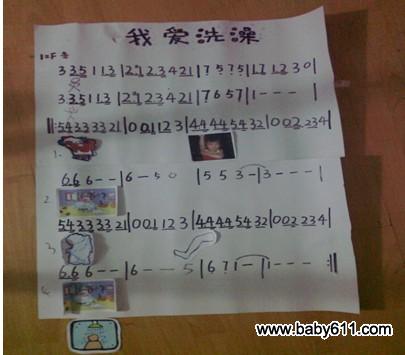 我爱洗澡
1=F
3 35 1 1 3 | 2 1 2 3 4 21 | 7 5 7 5 | 1 7 1 2 3 0 |
3 35 1 1 3 | 2 1 2 3 4 21 | 7 6 5 7 | 1 - - - |
‖: 54 33 33 21 | 0 01 12 3 | 44 44 54 32 | 0 02 23 4 |
1.
66 6 - - | 6 - 5 0 | 5 5 3 - | 3 - - - |
2.
54 33 33 21 | 0 01 12 3 | 44 44 54 32 | 0 02 23 4 |
3.
66 6 - - | 6 - - 5 | 6 7 1 - | 1 - - - :‖
4.
www.baby611.com